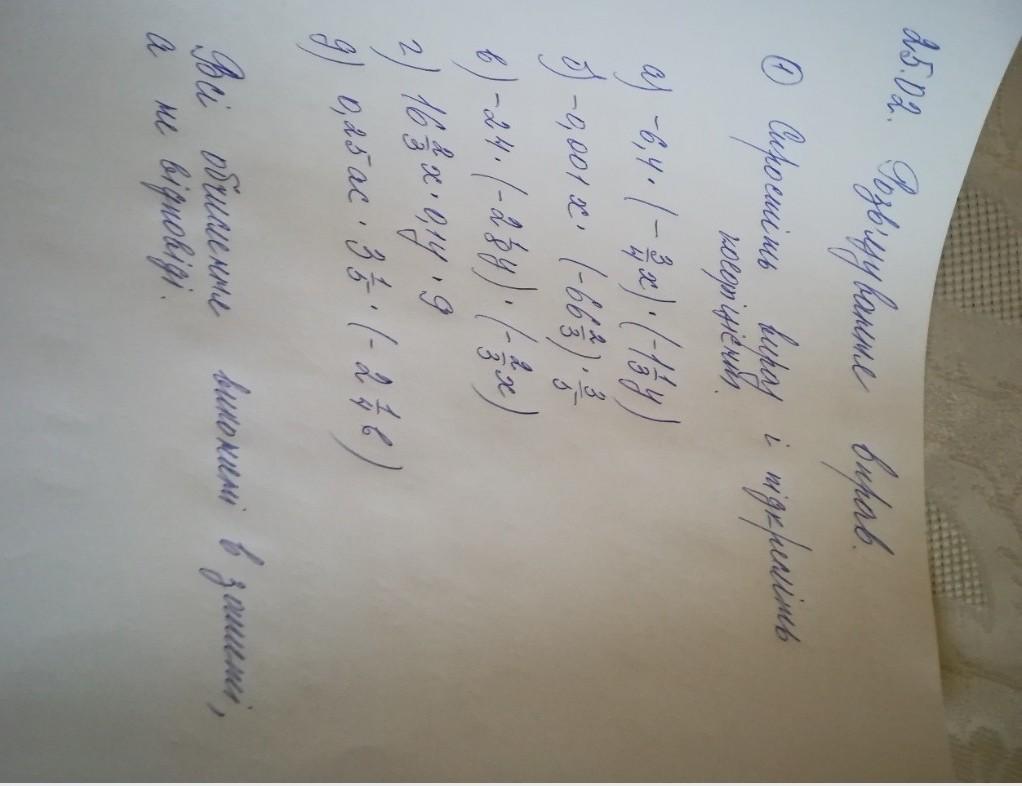 25.02. Розв'язування вправ.
① Спростіть вираз і підкресліть
коефіцієнт.
а) -6,4 · (-3/4 x) · (-1 1/3 y)
б) -0,001x · (-66 2/3) · 3/5
в) -24 · (-2 y) · (-2/3 x)
г) 16 2/3 x · 0,1y · 9
д) 0,25ax · 3 1/5 · (-2 1/4 b)
Всі обчислення виконані в зошиті,
а не відповіді.